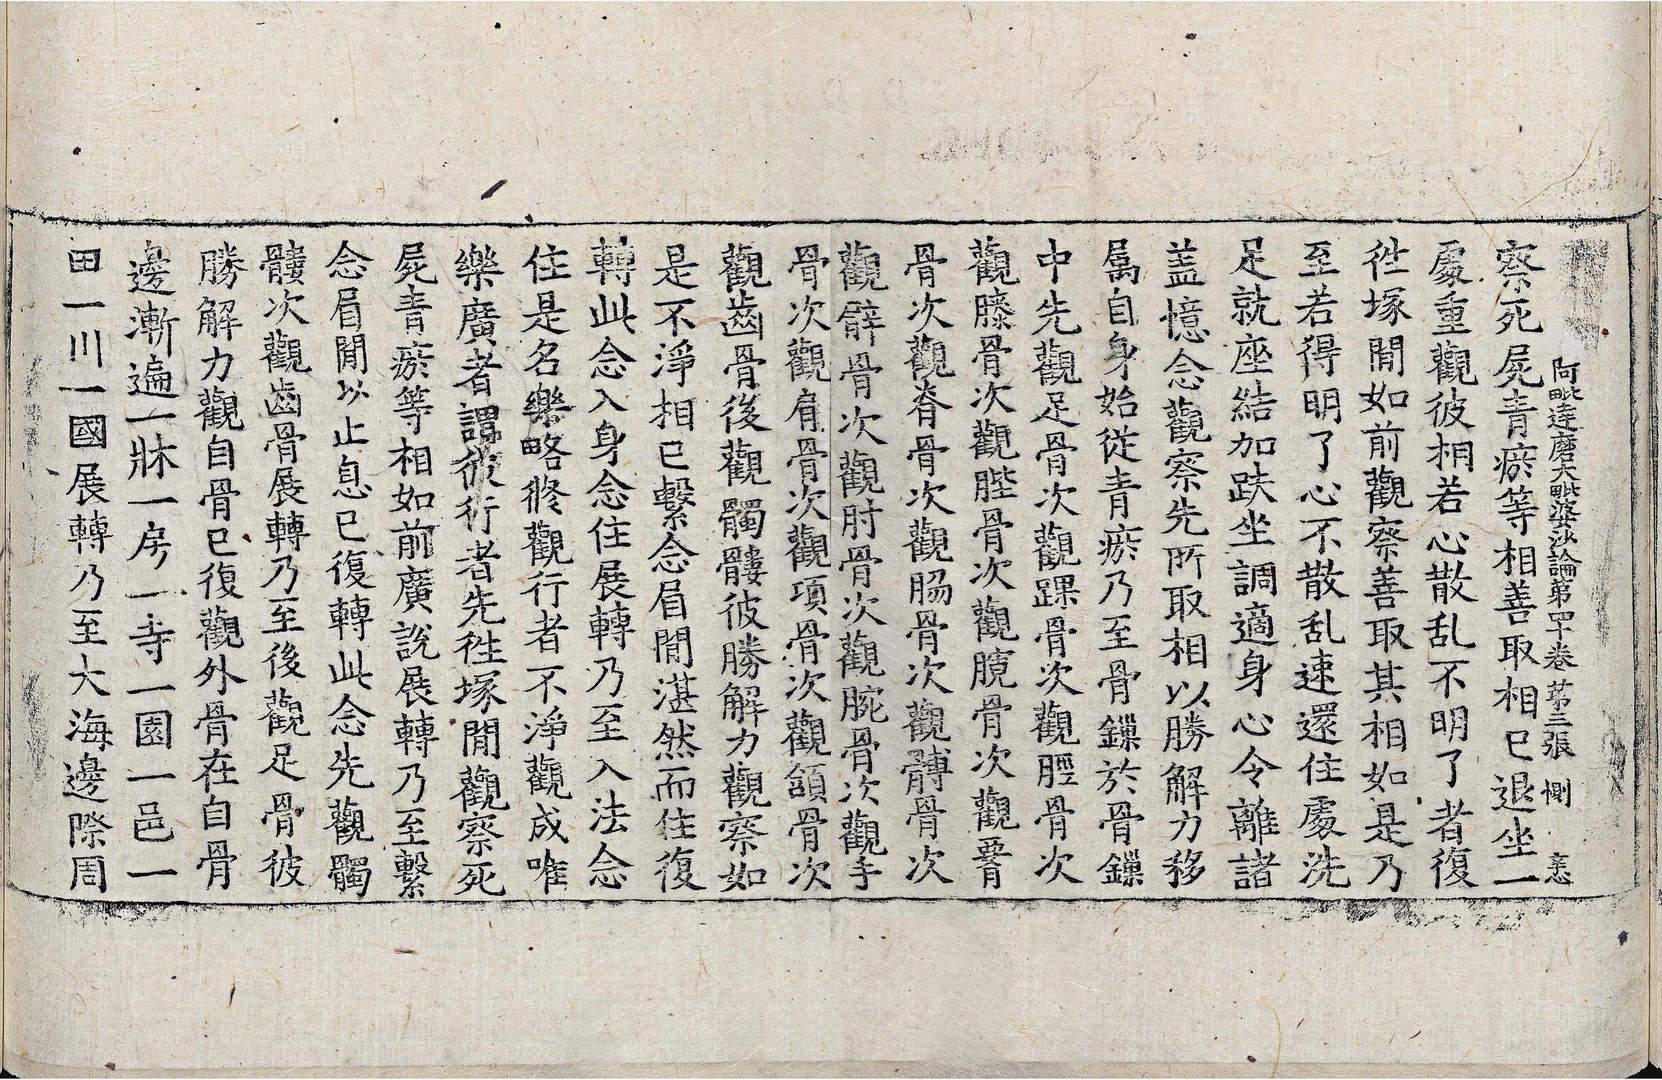 阿毗達磨大毗婆沙論第四十卷 第三張 惻 忠
察死屍青瘀等相善取相已退坐一
處重觀彼相若心散乱不明了者復
徃塚閒如前觀察善取其相如是乃
至若得明了心不散乱速還住處洗
足就座結加趺坐調適身心令離諸
盖憶念觀察先所取相以勝解力移
属自身始從青瘀乃至骨鏁於骨鏁
中先觀足骨次觀踝骨次觀脛骨次
觀膝骨次觀髀骨次觀臗骨次觀𦝫
骨次觀脊骨次觀脇骨次觀髆骨次
觀臂骨次觀肘骨次觀腕骨次觀手
骨次觀肩骨次觀項骨次觀頷骨次
觀齒骨後觀髑髏彼勝解力觀察如
是不淨相已繫念眉閒湛然而住復
轉此念入身念住展轉乃至入法念
住是名樂略修觀行者不淨觀成唯
樂廣者謂彼行者先徃塚閒觀察死
屍青瘀等相如前廣說展轉乃至繫
念眉閒以止息已復轉此念先觀髑
髏次觀齒骨展轉乃至後觀足骨彼
勝解力觀自骨已復觀外骨在自骨
邊漸遍一牀一房一寺一園一邑一
田一川一國展轉乃至大海邊際周